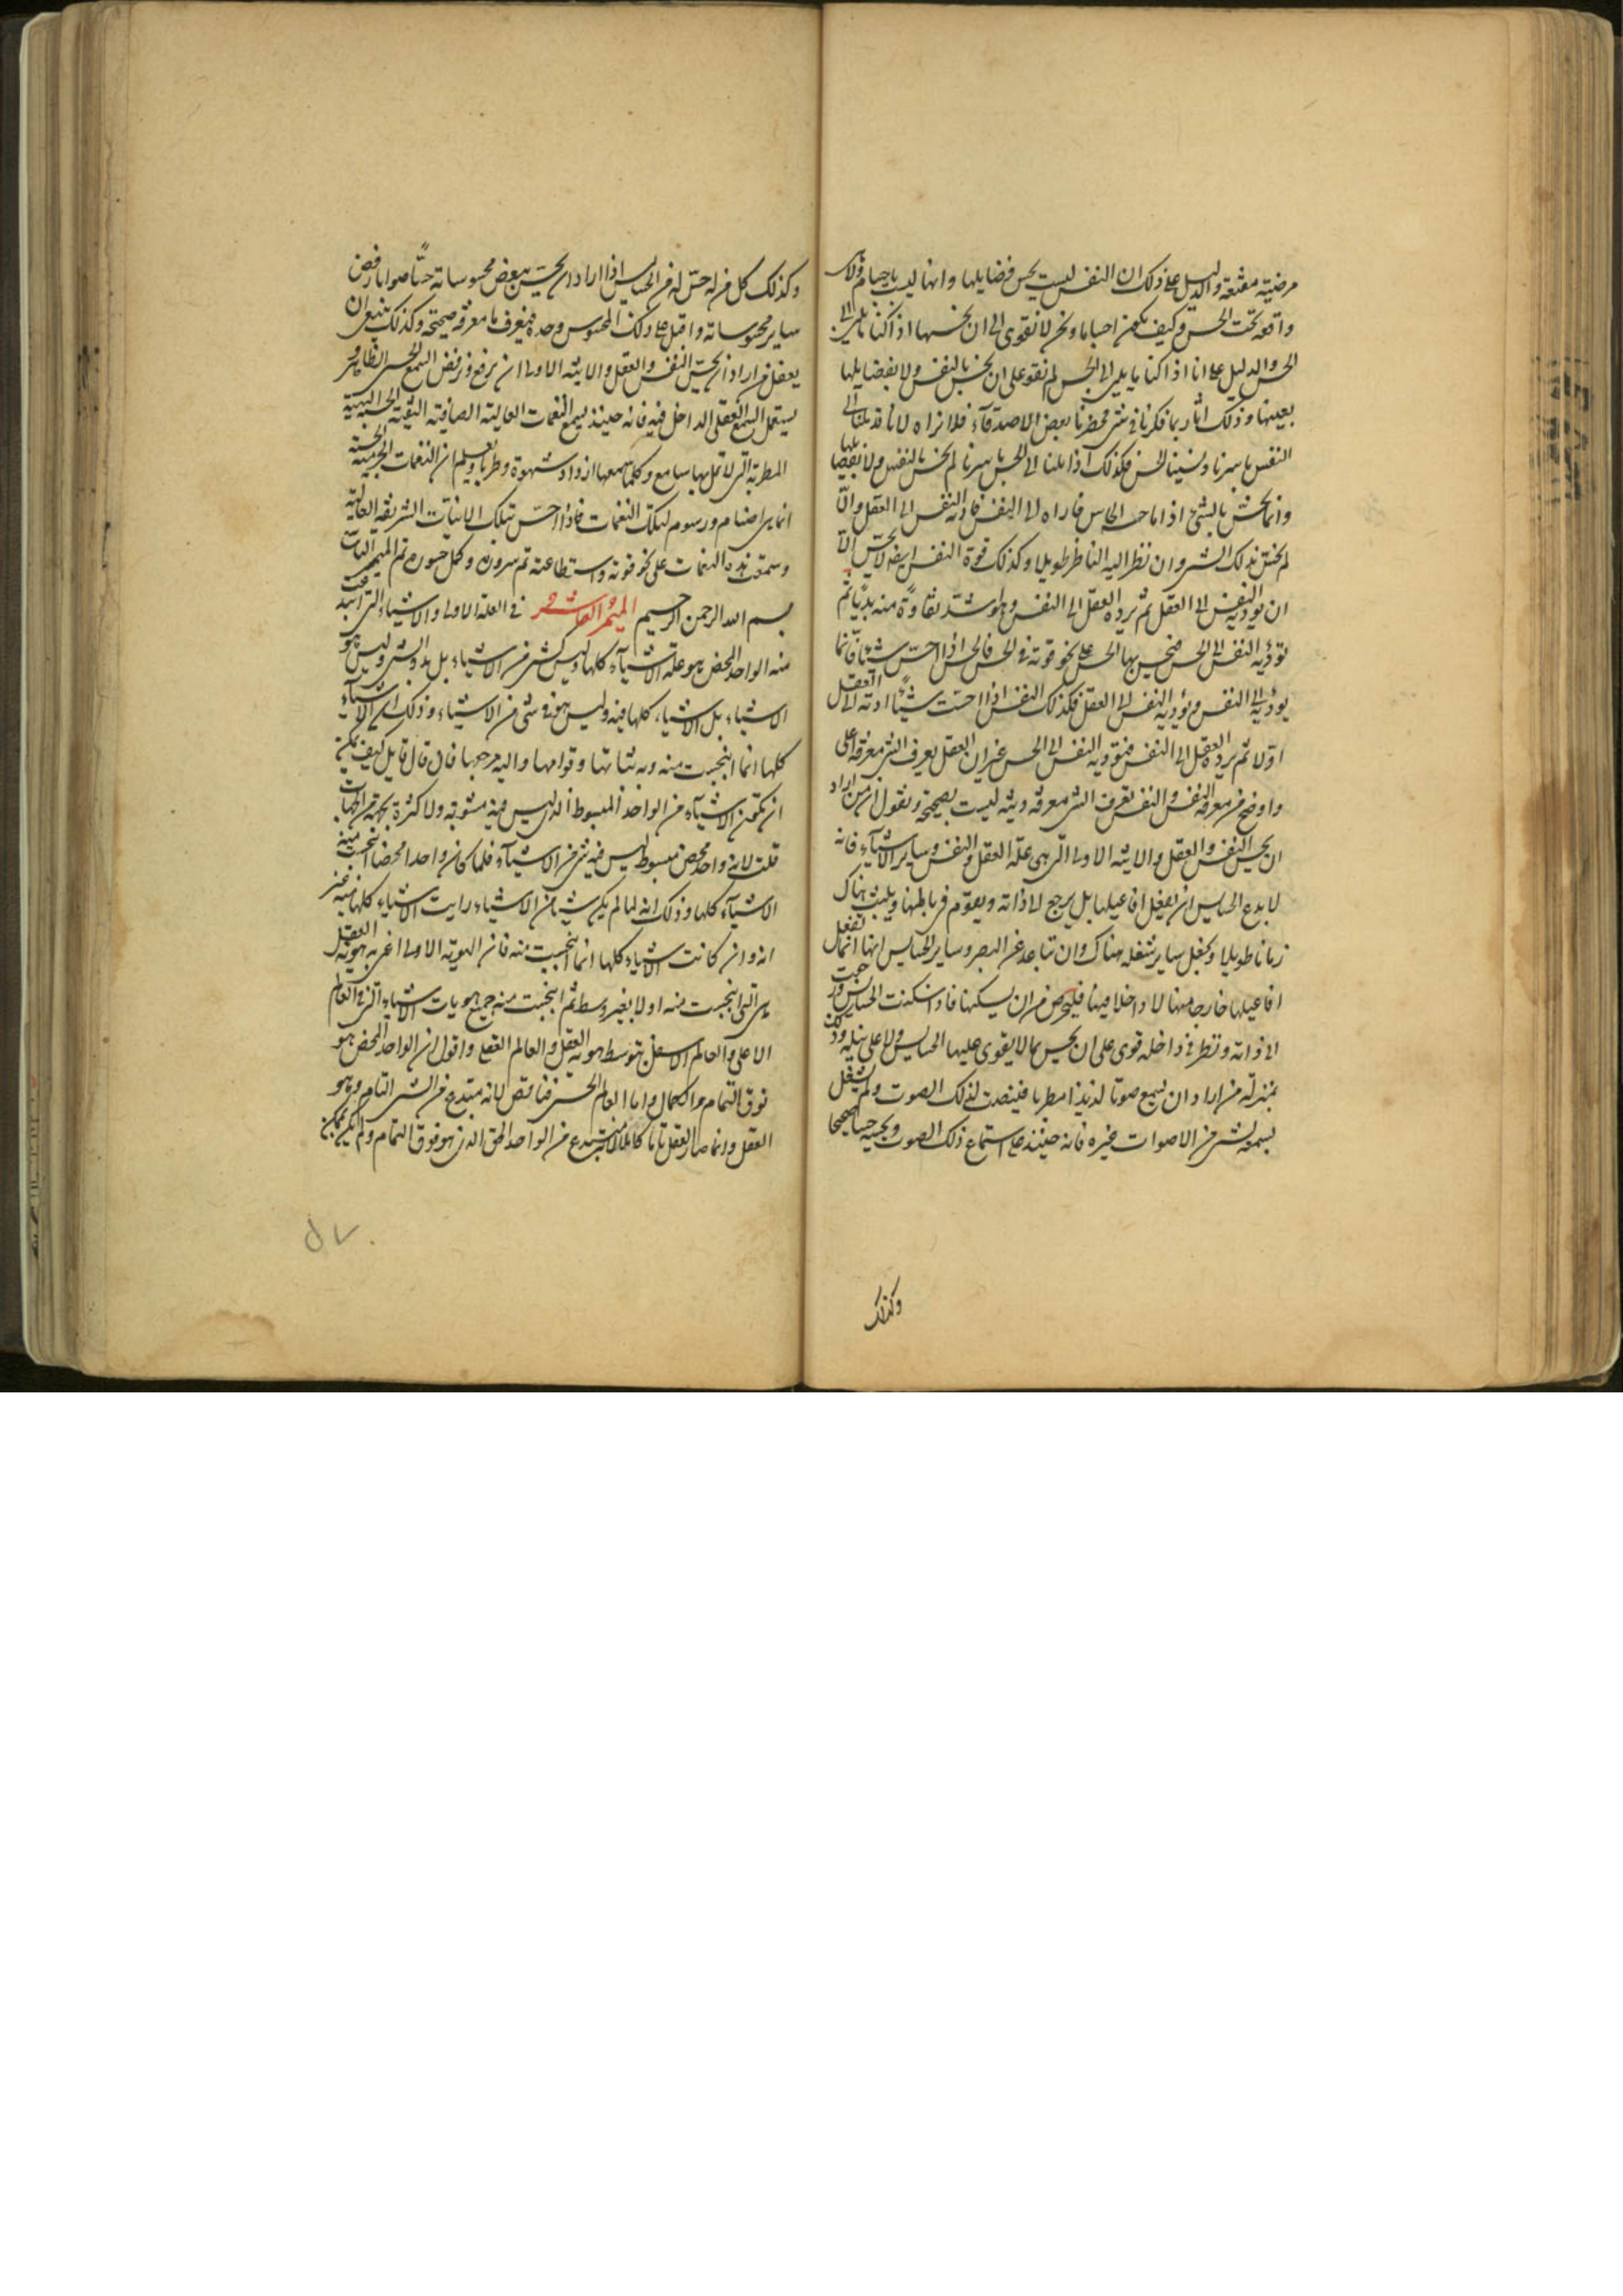 مرضية مقنعة والدليل على ذلك ان النفس ليست يحس فضايلها وانها ليست باجسام ولا
واقعة تحت الحس وكيف تكون اجساما ونحن لا نقوى الى ان نحسها اذا كنا مايلين الى
الحس والدليل على انا اذا كنا مايلين الى الحس لم نقو على ان نحس بالنفس ولا بفضايلها
بعينها وذلك انا ربما فكرنا في شئ فحضرنا بعض الاصدقاء فلا نراه لانا قد ملنا الى
النفس باسرنا ونسينا الحس فكذلك اذا ملنا الى الحس باسرنا لم نحس بالنفس ولا بفضايلها
وانما نحس بالشئ اذا ما حسه الحاس فاداه الى النفس فادته النفس الى العقل والا
لم نحس بذلك الشئ وان نظر اليه الناظر طويلا وكذلك قوة النفس ايضا لا يحس الا
ان يؤديه النفس الى العقل ثم يرده العقل الى النفس وهو اشد نقاوة منه بديا ثم
تؤديه النفس الى الحس فيحس بها الحس على نحو قوته في الحس فالحس اذا احس شيئا فانما
يؤديه الى النفس وتؤديه النفس الى العقل فكذلك النفس اذا احست شيئا ادته الى العقل
اولا ثم يرده العقل الى النفس فتؤديه النفس الى الحس غير ان العقل يعرف الشئ معرفة اعلى
واوضح من معرفة النفس والنفس تعرف الشئ معرفة دنية ليست بصحيحة ونقول ان من اراد
ان يحس النفس والعقل والانية الاولى التي هى علة العقل والنفس وساير الاشياء فانه
لا يدع الحسايس ان يفعل افاعيلها بل يرجع الى ذاته ويقوم في باطنها ويلبث هناك
زمانا طويلا ويجعل ساير شغله هناك وان تباعد عن البصر وساير الحسايس لانها انما تفعل
افاعيلها خارجا منها لا داخلا فيها فليحرص من ان يسكنها فاذا سكنت الحسايس ورجعت
الى ذاته ونظر في داخله قوى على ان يحس بما لا يقوى عليها الحسايس ولا على نيله وذلك
بمنزلة من اراد ان يسمع صوتا لذيذا مطربا فينصت لذلك الصوت ولم يشغل
بسمعه لشئ من الاصوات غيره فانه حينئذ على استماع ذلك الصوت ويحسه حسا صحيحا
وكذلك
وكذلك كل من له حس له من الحسايس اذا اراد ان يحس ببعض محسوساته حسا صوابا رفض
ساير محسوساته واقبل على ذلك المحسوس وحده فيعرفه بها معرفة صحيحة وكذلك ينبغى ان
يفعل من اراد ان يحس النفس والعقل والانية الاولى ان يرفع ويرفض السمع الحسى الظاهر
يستعمل السمع العقلى الداخل فيه فانه حينئذ يسمع النغمات العالية الصافية النقية الحسنة البهية
المطربة التى لا تمل بها سامع وكلما سمعها ازداد شهوة وطربا ويعلم ان النغمات الجرمية الحسية
انما هى اصنام ورسوم لتلك النغمات فاذا احس بتلك الانيات الشريفة العالية
وسمع بهذه النغمات على نحو قوته واستطاعته تم سروره وكمل حبوره تم الميمر التاسع
بسم الله الرحمن الرحيم الميمر العاشر في العلة الاولى والاشياء التى ابتدعت
منه الواحد المحض هو علة الاشياء كلها وليس كشئ من الاشياء بل بدو الشئ وليس هو
الاشياء بل الاشياء كلها فيه وليس هو في شئ من الاشياء وذلك ان الاشياء
كلها انما انبجست منه وبه ثباتها وقوامها واليه مرجعها فان قال قايل كيف يمكن
ان تكون الاشياء من الواحد المبسوط الذى ليس فيه مثنوية ولا كثرة بجهة من الجهات
قلت لانه واحد محض مبسوط ليس فيه شئ من الاشياء فلما كان واحدا محضا انبجست منه
الاشياء كلها وذلك انه لما لم يكن شيئا من الاشياء رايت الاشياء كلها منه غير
انه وان كانت الاشياء كلها انما انبجست منه فان الهوية الاولى اعنى به هوية العقل
هى التى انبجست منه اولا بغير وسط ثم انبجست منه جميع هويات الاشياء التى في العالم
الاعلى والعالم الاسفل بتوسط هوية العقل والعالم العقلى واقول ان الواحد المحض هو
فوق التمام والكمال واما العالم الحسى فناقص لانه مبتدع من الشئ التام وهو
العقل وانما صار العقل تاما كاملا لانه مبتدع من الواحد الحق الذى هو فوق التمام ولم يكن يمكن